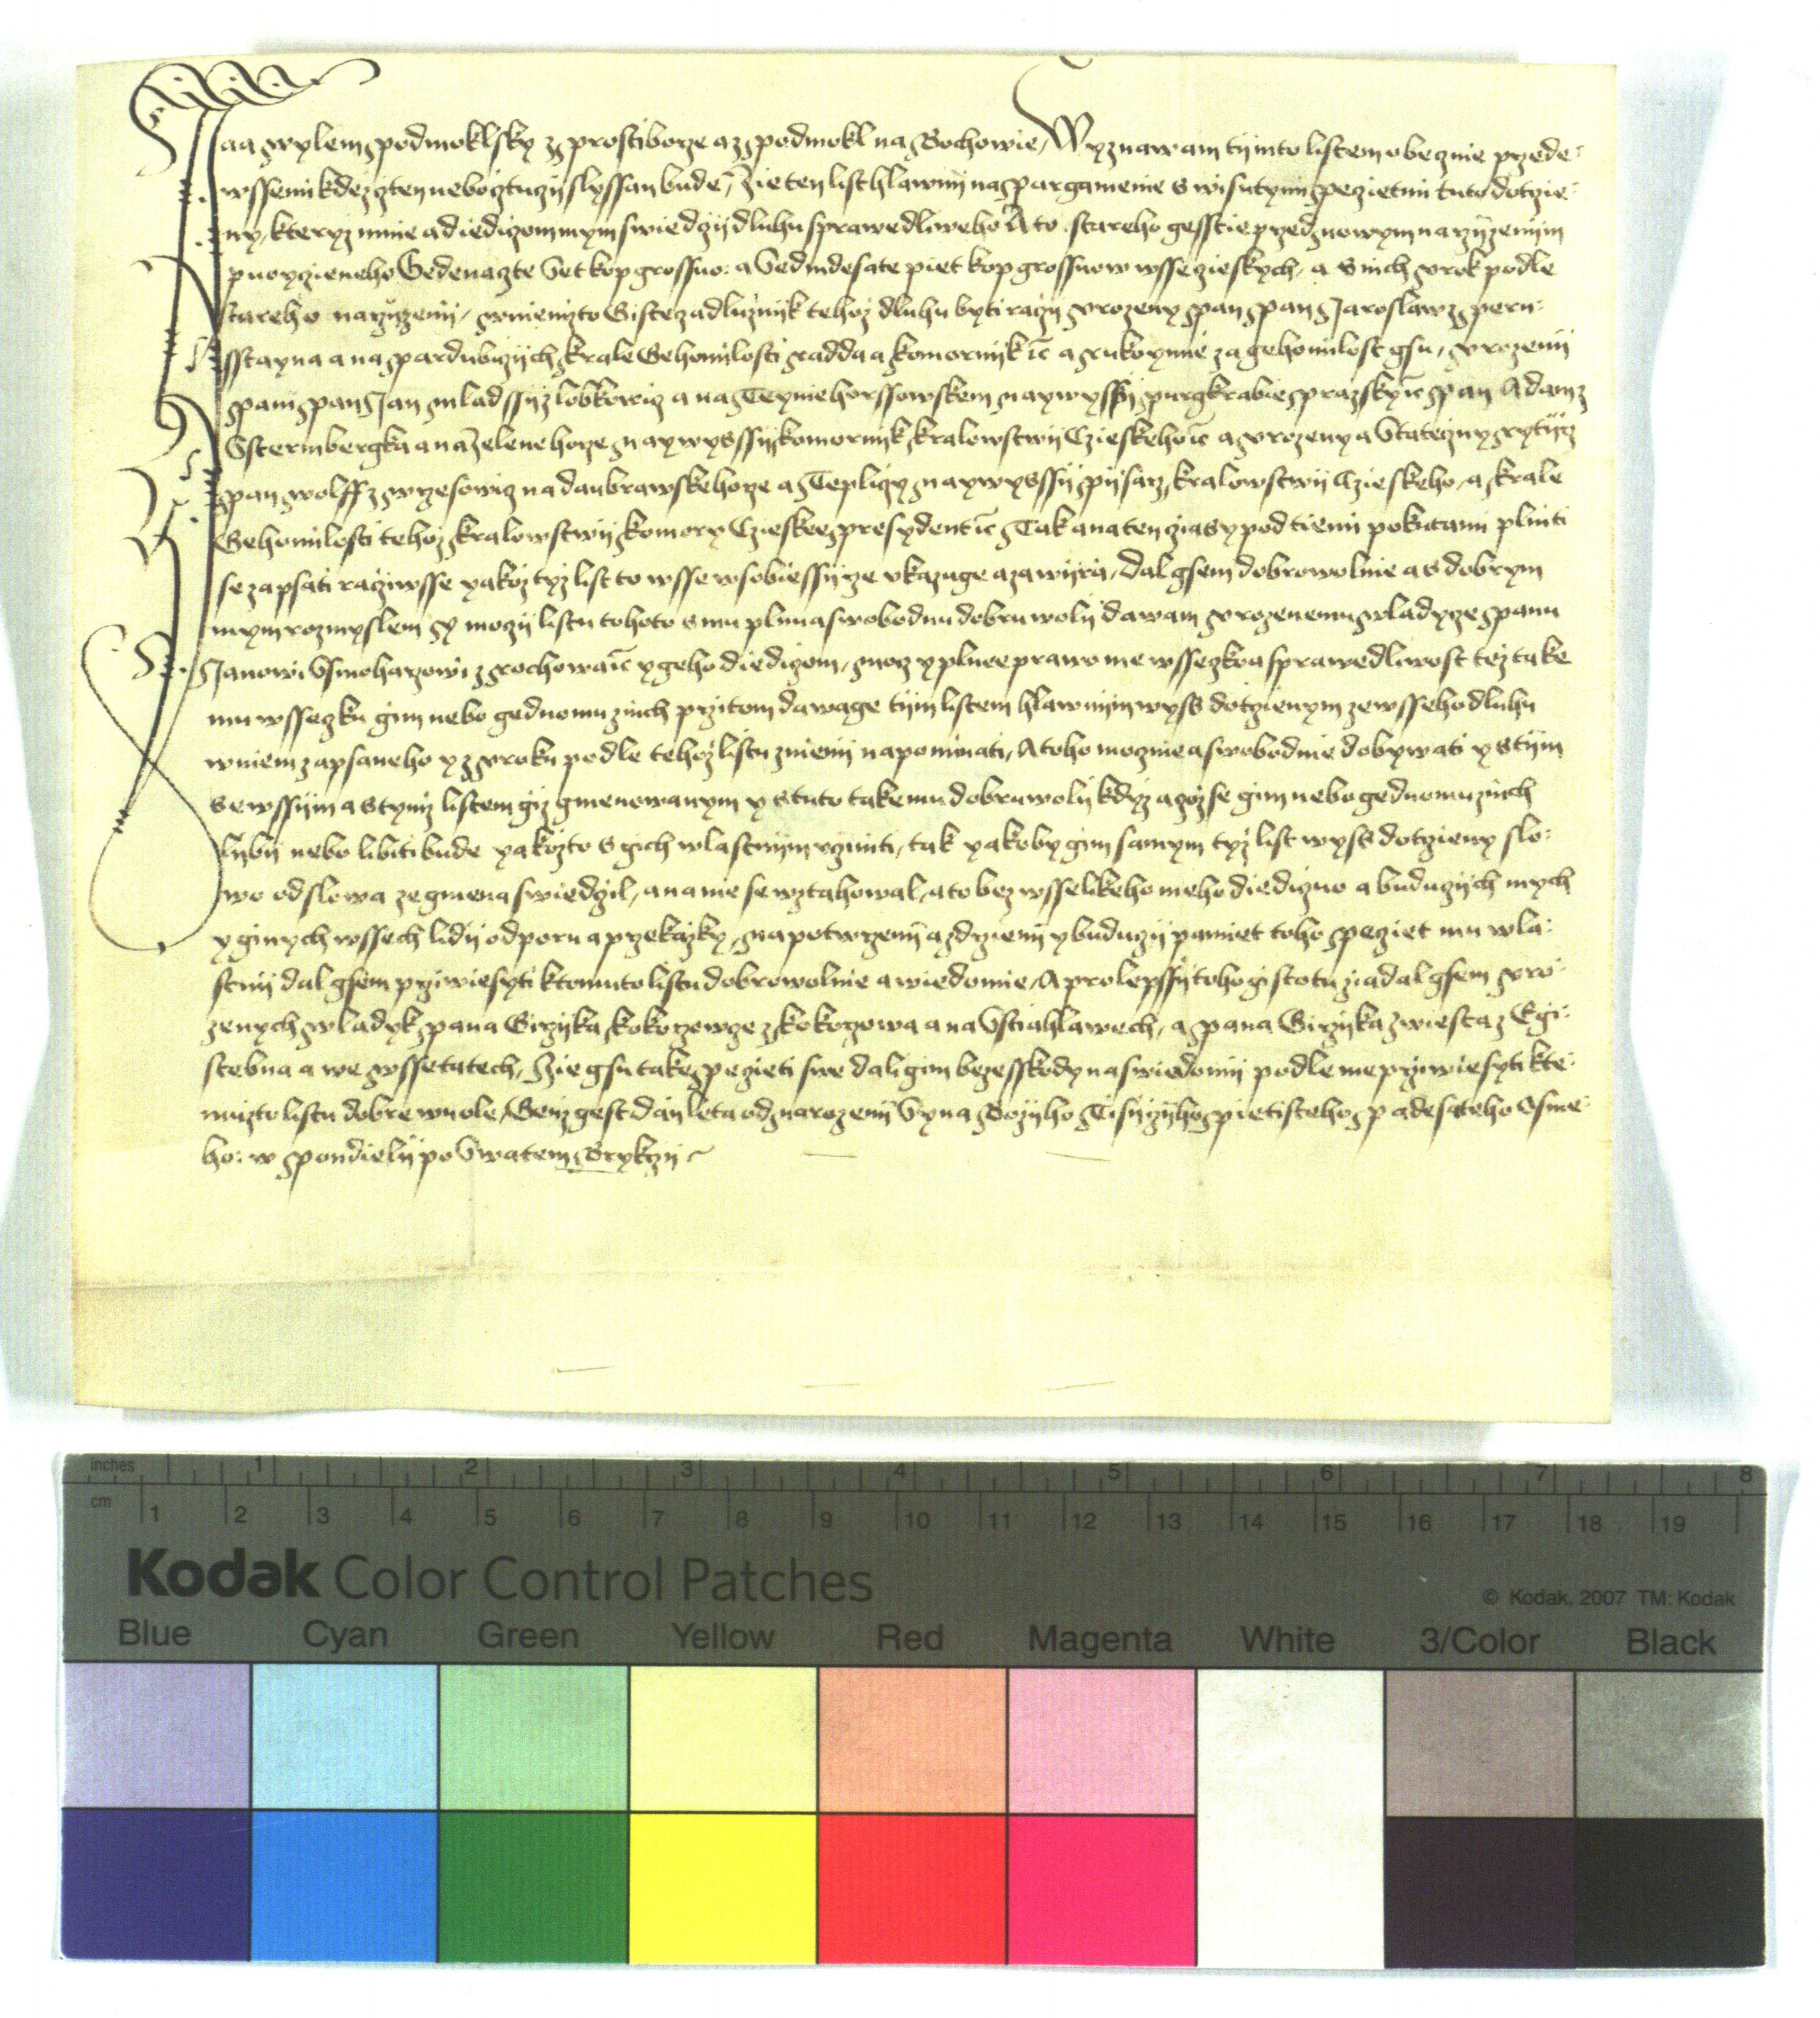 Jaa wylem podmoklsky z prostiborze a z podmokl na Bochowie, Wyznawam tijmto listem obeznie przede:
wssemi kdez czten nebo cztuczy slyssan bude, Zie ten list hlawnij na pargamenie s wisutymi peczietmi tuto dotczie:
ny, kteryz mnie a diediczom mym swiedczij dluhu sprawedliweho A to stareho gesstie przed nowym narzijzenijm
puoyczieneho Gedenaczte Set kop grossuo: a Sedmdesate piet kop grossuow wsse czieskych, a s nich urok podle
stareho narzijzenij, w niemzto Gistecz a dluznijk tehoz dluhu byti raczij urozeny pan pan Jaroslaw z pern:
sstayna a na pardubiczijch krale Geho milosti radda a komornijk ic a rukoymie za geho milost gsu, urozenij
pani pan Jan mladssij z lobkowicz a na Teynie horssowskem naywyssij purgkrabie prazsky ic pan Adam z
Sstermbergka a na Zelene horze naywyssij komornijk kralowstwij Czieskeho ic a urozeny a Stateczny rytijrz
pan wolff z wrzesowicz na daubrawske horze a Tepliczy naywyssij pijsarz kralowstwij Czieskeho, a krale
Geho milosti tehoz kralowstwij komory Czieskee presydent ic Tak a na ten czias y pod tiemi pokutami plniti
se zapsati racziwsse yakoz tyz list to wsse w sobie ssijrze ukazuge a zawijra, Dal gsem dobrowolnie a s dobrym
mym rozmyslem y moczij listu tohoto s mu plnu a swobodnu dobru wolij dawam urozenemu wladyze panu
Janowi Smoharzowi z rochowa ic y geho diediczom, mocz y plnee prawo me wsseczko a sprawedliwost tez take
mu wsseczku gim nebo gednomu z nich przitom dawage tijm listem hlawnijm wyss dotczienym ze wsseho dluhu
w niem zapsaneho y z uroku podle tehoz listu znienij napominati, A toho moznie a swobodnie dobywati y s tijm
se wssijm a s tymz listem giz gmenowanym y s tuto take mu dobru wolij kdyz a czoz se gim nebo gednomu z nich
lijbij nebo libiti bude yakozto s gich wlastnijm ucziniti, tak yakoby gim samym tyz list wyss dotczieny slo:
wo od slowa ze gmena swiedczil, a na nie se wztahowal, a to bez wsselikeho meho diediczuo a buduczijch mych
y ginych wssech lidij odporu a przekazky, na potwrzenij a zdrzienij y buduczij pamiet toho peczet mu wla:
stnij dal gsem prziwiesyti k tomuto listu dobrowolnie a wiedomie, A pro lepssij toho gistotu ziadal gsem uro:
zenych wladyk pana Girzijka kokorzowcze z kokorzowa a na Sstiahlawech, a pana Girzijka Zwiesta z Egi:
stebna a we wssetatech, Zie gsu take peczieti swe dali gim beze sskody na swiedomij podle me prziwiesyti k te:
muzto listu dobre wuole, Genz gest dan leta od narozenij Syna Bozijho Tisijczijho pietisteho padesateho Osme:
ho: w pondielij po Swatem Brykczij
inches 1 2 3 4 5 6 7 8
cm 1 2 3 4 5 6 7 8 9 10 11 12 13 14 15 16 17 18 19
Kodak Color Control Patches
© Kodak, 2007 TM: Kodak
Blue Cyan Green Yellow Red Magenta White 3/Color Black